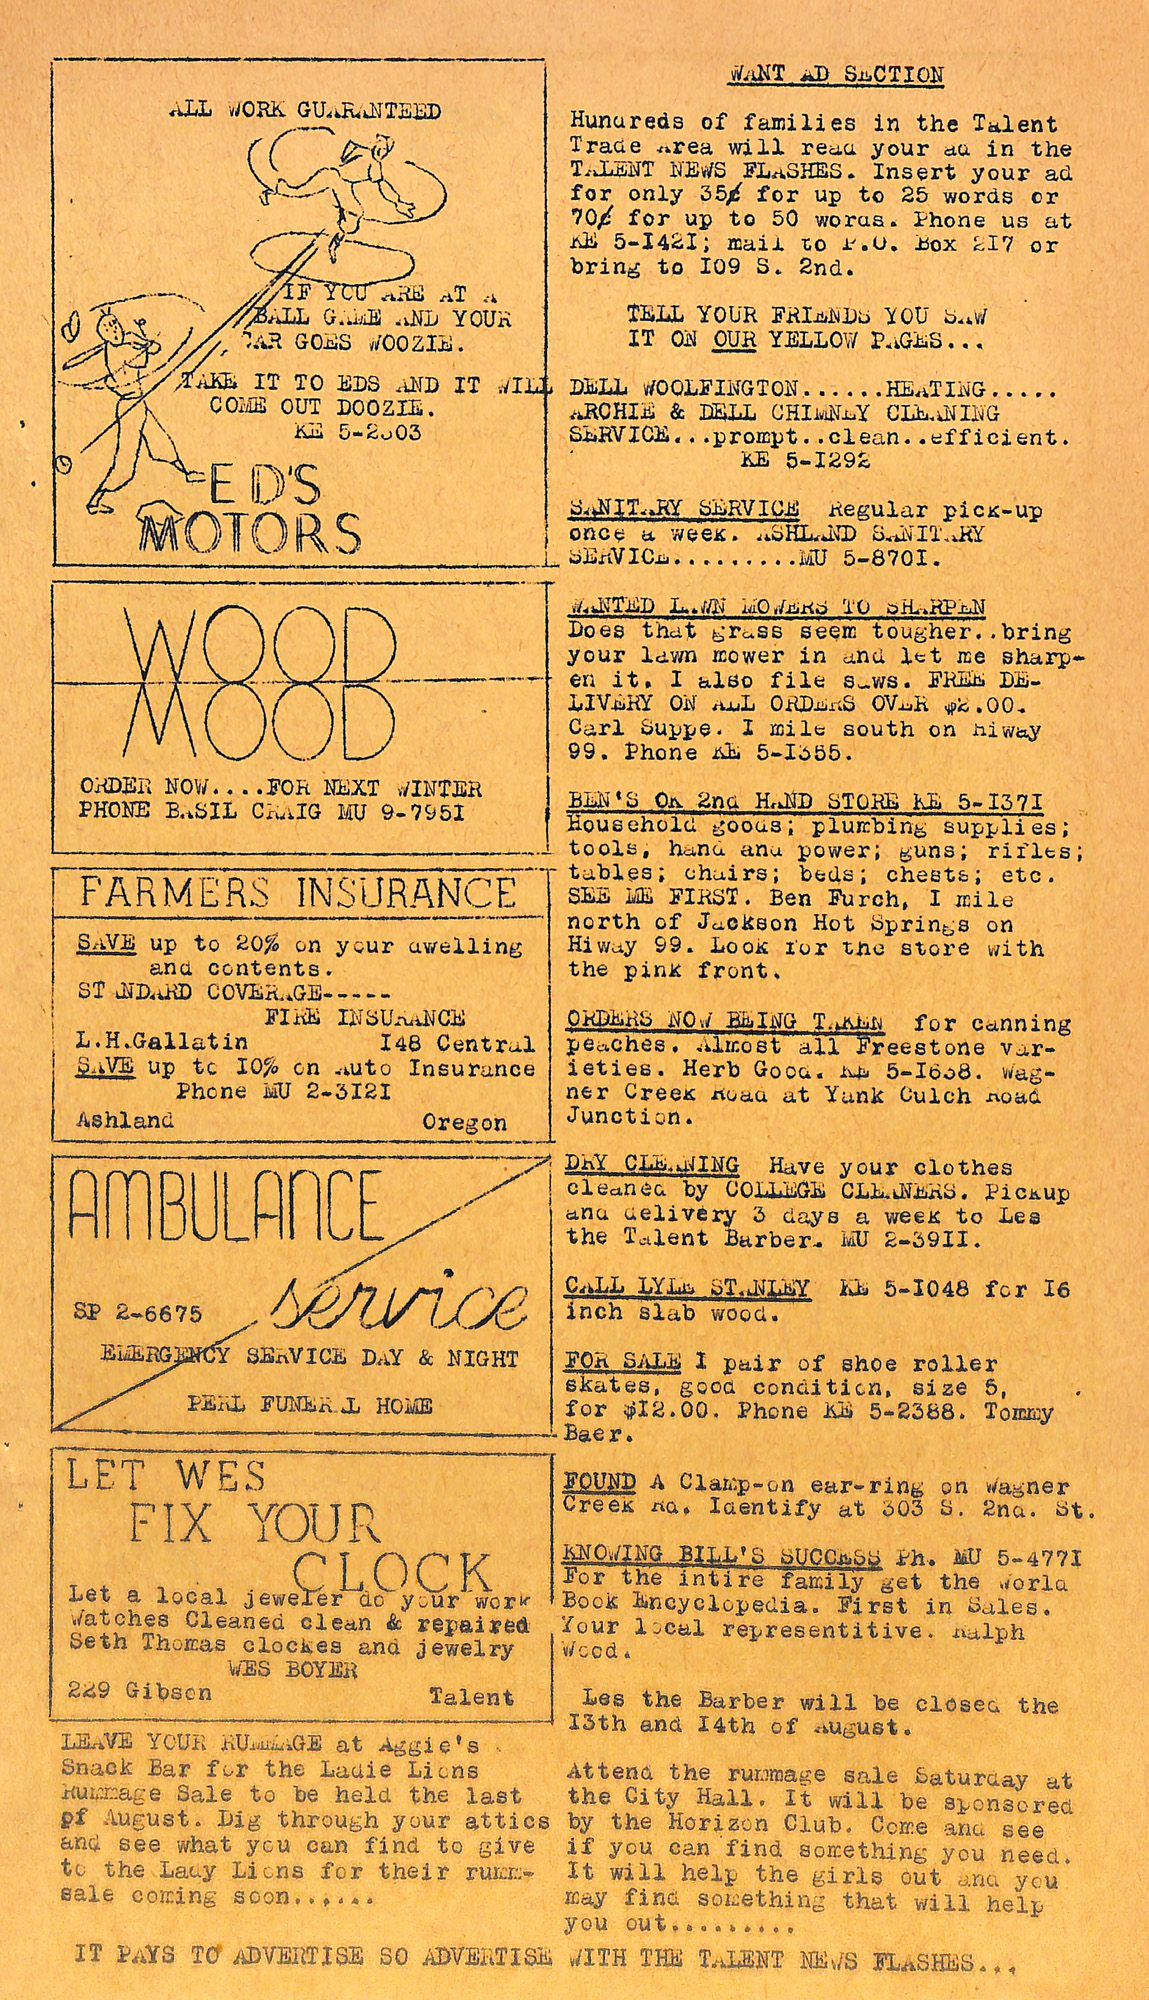 ALL WORK GUARANTEED
IF YOU ARE AT A
BALL GAME AND YOUR
CAR GOES WOOZIE.
TAKE IT TO EDS AND IT WILL
COME OUT DOOZIE.
KE 5-2503
ED'S
MOTORS
WOOD
WOOD
ORDER NOW....FOR NEXT WINTER
PHONE BASIL CRAIG MU 9-795I
FARMERS INSURANCE
SAVE up to 20% on your dwelling
and contents.
STANDARD COVERAGE-----
FIRE INSURANCE
L.H.Gallatin I48 Central
SAVE up to I0% on Auto Insurance
Phone MU 2-3I2I
Ashland Oregon
AMBULANCE
service
SP 2-6675
EMERGENCY SERVICE DAY & NIGHT
PERL FUNERAL HOME
LET WES
FIX YOUR
CLOCK
Let a local jeweler do your work
Watches Cleaned clean & repaired
Seth Thomas clockes and jewelry
WES BOYER
229 Gibson Talent
LEAVE YOUR RUMMAGE at Aggie's
Snack Bar for the Ladie Lions
Rummage Sale to be held the last
of August. Dig through your attics
and see what you can find to give
to the Lady Lions for their rumm-
sale coming soon......
WANT AD SECTION
Hundreds of families in the Talent
Trade Area will read your ad in the
TALENT NEWS FLASHES. Insert your ad
for only 35¢ for up to 25 words or
70¢ for up to 50 words. Phone us at
KE 5-I42I; mail to P.O. Box 2I7 or
bring to I09 S. 2nd.
TELL YOUR FRIENDS YOU SAW
IT ON OUR YELLOW PAGES...
DELL WOOLFINGTON......HEATING.....
ARCHIE & DELL CHIMNEY CLEANING
SERVICE...prompt..clean..efficient.
KE 5-I292
SANITARY SERVICE Regular pick-up
once a week. ASHLAND SANITARY
SERVICE.........MU 5-870I.
WANTED LAWN MOWERS TO SHARPEN
Does that grass seem tougher..bring
your lawn mower in and let me sharp-
en it. I also file saws. FREE DE-
LIVERY ON ALL ORDERS OVER $2.00.
Carl Suppe. I mile south on hiway
99. Phone KE 5-I355.
BEN'S OK 2nd HAND STORE KE 5-I37I
Household goods; plumbing supplies;
tools, hand and power; guns; rifles;
tables; chairs; beds; chests; etc.
SEE ME FIRST. Ben Furch, I mile
north of Jackson Hot Springs on
Hiway 99. Look for the store with
the pink front.
ORDERS NOW BEING TAKEN for canning
peaches. Almost all Freestone var-
ieties. Herb Good. KE 5-I638. Wag-
ner Creek Road at Yank Gulch Road
Junction.
DRY CLEANING Have your clothes
cleaned by COLLEGE CLEANERS. Pickup
and delivery 3 days a week to Les
the Talent Barber. MU 2-39II.
CALL LYLE STANLEY KE 5-I048 for I6
inch slab wood.
FOR SALE I pair of shoe roller
skates, good condition, size 5,
for $I2.00. Phone KE 5-2388. Tommy
Baer.
FOUND A Clamp-on ear-ring on Wagner
Creek Rd. Identify at 303 S. 2nd. St.
KNOWING BILL'S SUCCESS Ph. MU 5-477I
For the intire family get the World
Book Encyclopedia. First in Sales.
Your local representitive. Ralph
Wood.
Les the Barber will be closed the
I3th and I4th of August.
Attend the rummage sale Saturday at
the City Hall. It will be sponsored
by the Horizon Club. Come and see
if you can find something you need.
It will help the girls out and you
may find something that will help
you out.........
IT PAYS TO ADVERTISE SO ADVERTISE WITH THE TALENT NEWS FLASHES...